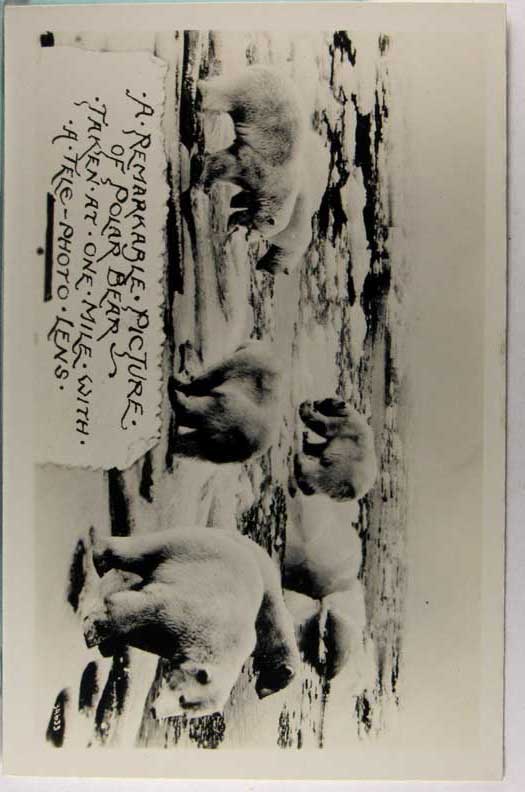 ·A·REMARKABLE·PICTURE·
OF POLAR BEAR
·TAKEN·AT·ONE·MILE·WITH·
·A·TELE-PHOTO·LENS·